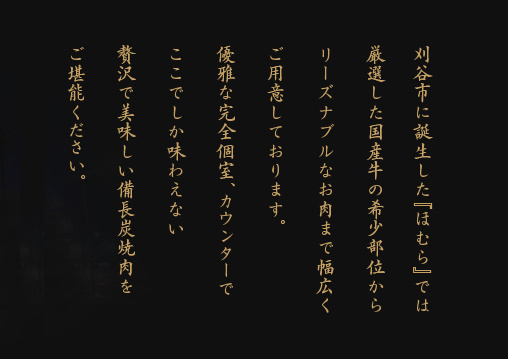 刈谷市に誕生した『ほむら』では
厳選した国産牛の希少部位から
リーズナブルなお肉まで幅広く
ご用意しております。
優雅な完全個室、カウンターで
ここでしか味わえない
贅沢で美味しい備長炭焼肉を
ご堪能ください。